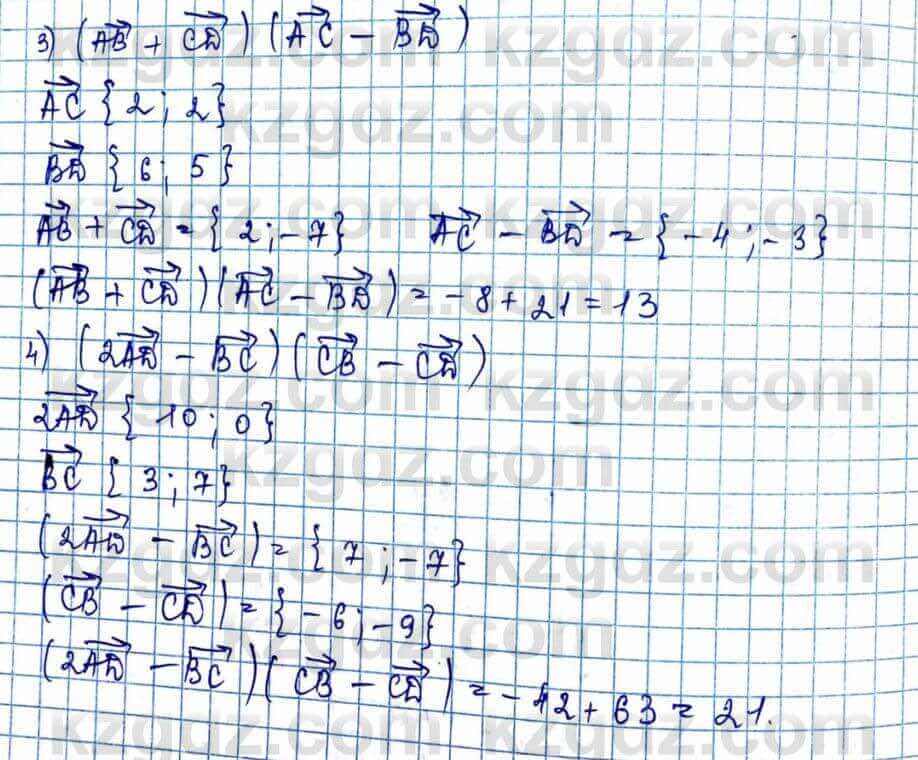 3) (AB + CD) (AC − BD)
AC {2; 2}
BD {6; 5}
AB + CD = {2; −7} AC − BD = {−4; −3}
(AB + CD)(AC − BD) = −8 + 21 = 13
4) (2AD − BC)(CB − CD)
2AD {10; 0}
BC {3; 7}
(2AD − BC) = {7; −7}
(CB − CD) = {−6; −9}
(2AD − BC)(CB − CD) = −42 + 63 = 21.
kzgdz.com